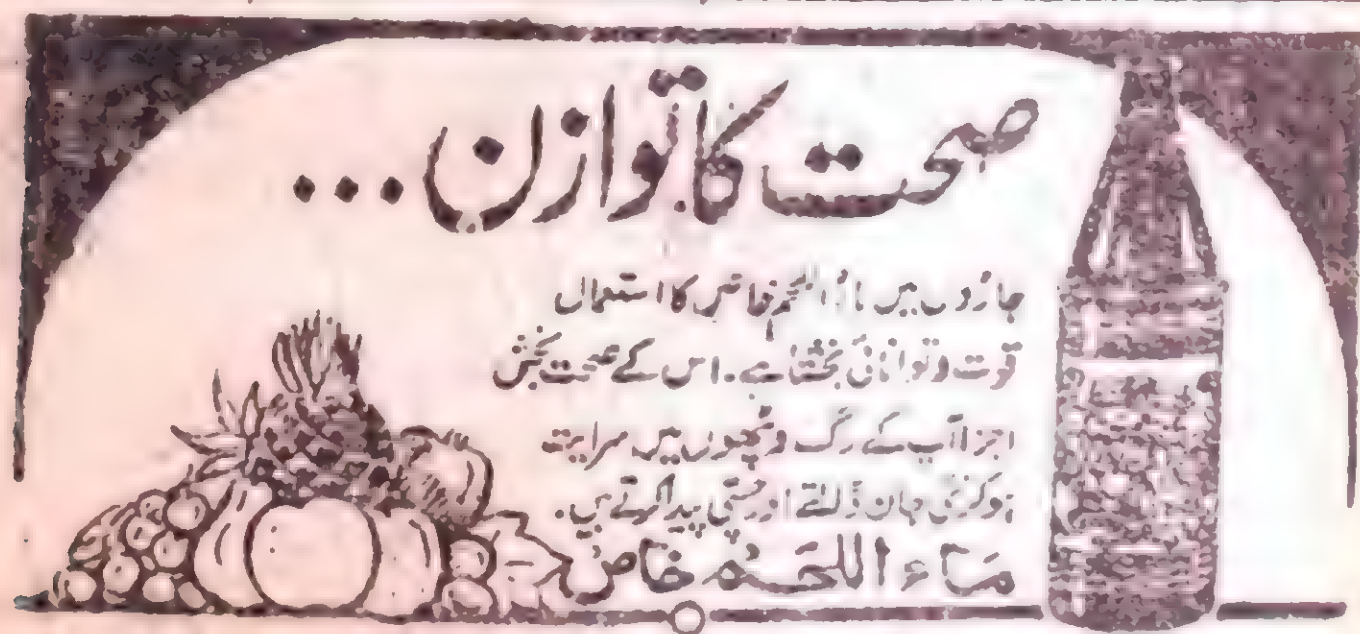 صحت کا توازن ...
جاڑوں میں ماءُ اللحم خاص کا استعمال
قوت و توانائی بخشتا ہے۔ اس کے صحت بخش
اجزا آپ کے رگ و پٹھوں میں سرایت
ہو کر نئی جان ڈالتے اور چستی پیدا کرتے ہیں۔
مَاءُ اللَّحم خاص